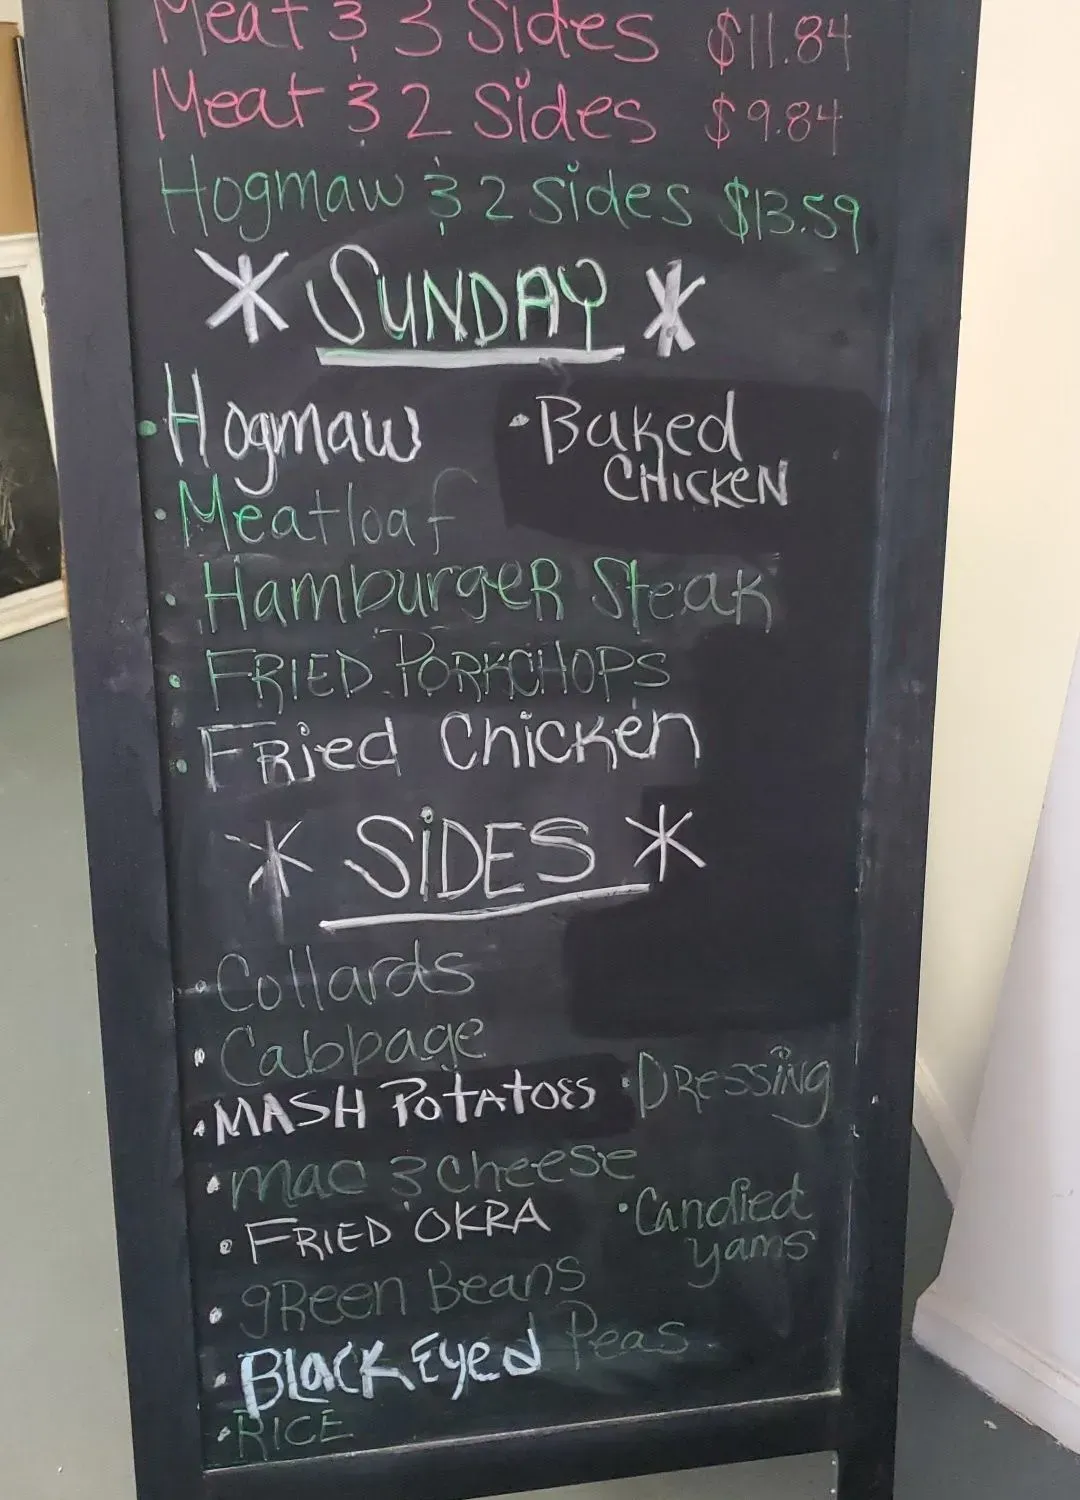 Meat & 3 Sides $11.84
Meat & 2 Sides $9.84
Hogmaw & 2 sides $13.59
* SUNDAY *
• Hogmaw
• Baked
CHICKEN
• Meatloaf
• HamburgeR Steak
• FRIED PORKCHOPS
• FRied Chicken
* SiDES *
• Collards
• Cabbage
• MASH PotAtoes
• DRessiNg
• mac & cheese
• FRIED OKRA
• Candied
yams
• gReen Beans
• BlacK Eyed Peas
• RICE